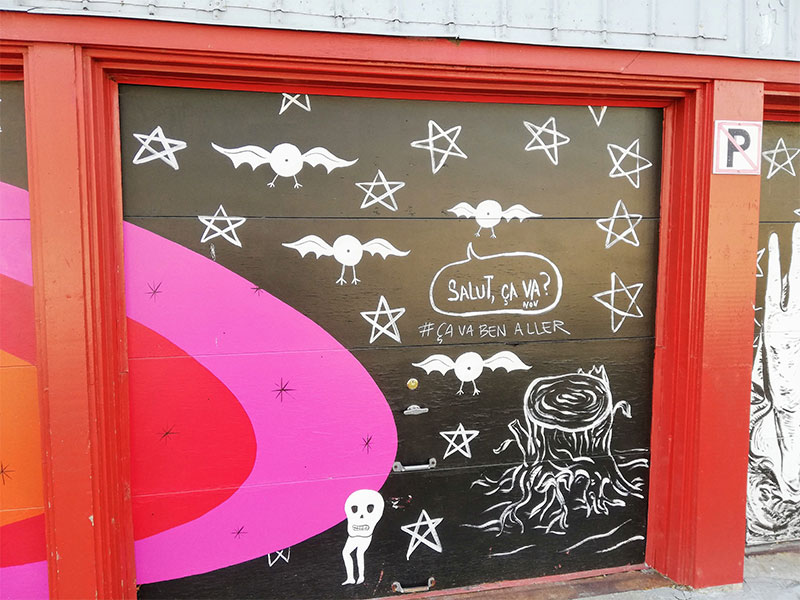 P
SALUT, ÇA VA?
NOV
#ÇA VA BEN ALLER